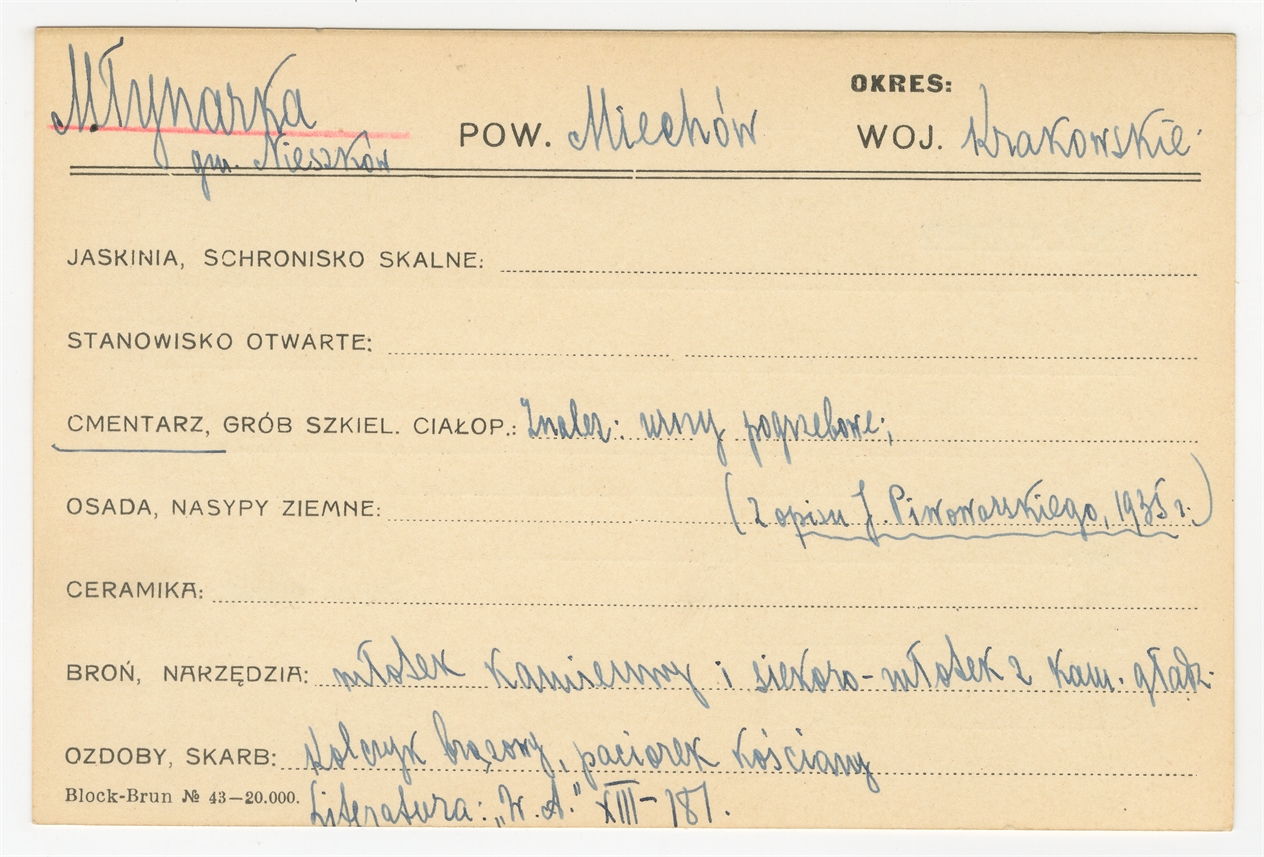 Młynarka
gm. Nieszków
POW. Miechów
OKRES:
WOJ. Krakowskie
JASKINIA, SCHRONISKO SKALNE:
STANOWISKO OTWARTE:
CMENTARZ, GRÓB SZKIEL. CIAŁOP.: Znalez: urny pogrzebowe;
OSADA, NASYPY ZIEMNE: (z opisu J. Piwowarskiego, 1935 r.)
CERAMIKA:
BROŃ, NARZĘDZIA: młotek kamienny i siekoro-młotek z kam. gładz.
OZDOBY, SKARB: Kolczyk brązowy, paciorek kościany
Block-Brun № 43—20.000.
Literatura: „W.A." XIII - 187.